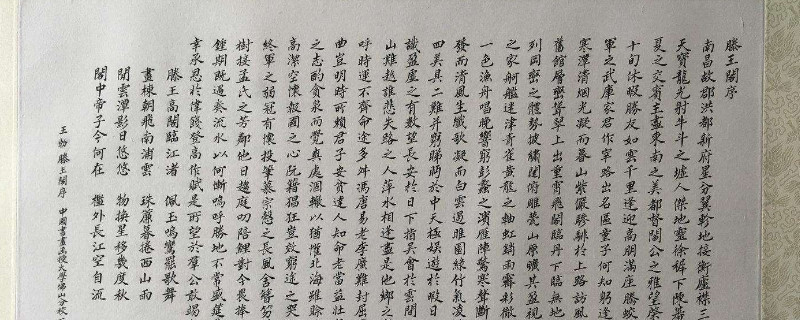 滕王閣序
南昌故郡洪都新府星分翼軫地接衡廬襟三
天寶龍光射牛斗之墟人傑地靈徐孺下陳蕃
夏之交賓主盡東南之美都督閻公之雅望棨
十旬休暇勝友如雲千里逢迎高朋滿座騰蛟
軍之武庫家君作宰路出名區童子何知躬逢
寒潭清烟光凝而暮山紫儼驂騑於上路訪風
舊館層巒聳翠上出重霄飛閣臨丹下臨無地
列岡巒之體勢披繡闥俯雕甍山原曠其盈視
之家舸艦迷津青雀黃龍之軸虹銷雨霽彩徹
一色漁舟唱晚響窮彭蠡之濱雁陣驚寒聲斷
發而清風生纖歌凝而白雲遏睢園綠竹氣凌
四美具二難并窮睇眄於中天極娛遊於暇日
識盈虛之有數望長安於日下指吳會於雲間
山難越誰悲失路之人萍水相逢盡是他鄉之
呼時運不齊命途多舛馮唐易老李廣難封屈
曲豈明時所賴君子安貧達人知命老當益壯
之志酌貪泉而覺爽處涸轍以猶懽北海雖賒
高潔空懷報國之心阮籍猖狂豈效窮途之哭
終軍之弱冠有懷投筆慕宗愨之長風舍簪笏
樹接孟氏之芳鄰他日趨庭叨陪鯉對今晨捧
鍾期既遇奏流水以何慚嗚呼勝地不常盛筵
幸承恩於偉餞登高作賦是所望於群公敢竭
滕王高閣臨江渚 佩玉鳴鸞罷歌舞
畫棟朝飛南浦雲 珠簾暮捲西山雨
閒雲潭影日悠悠 物換星移幾度秋
閣中帝子今何在 檻外長江空自流
王勃 滕王閣序 中國書畫函授大學佛山分校